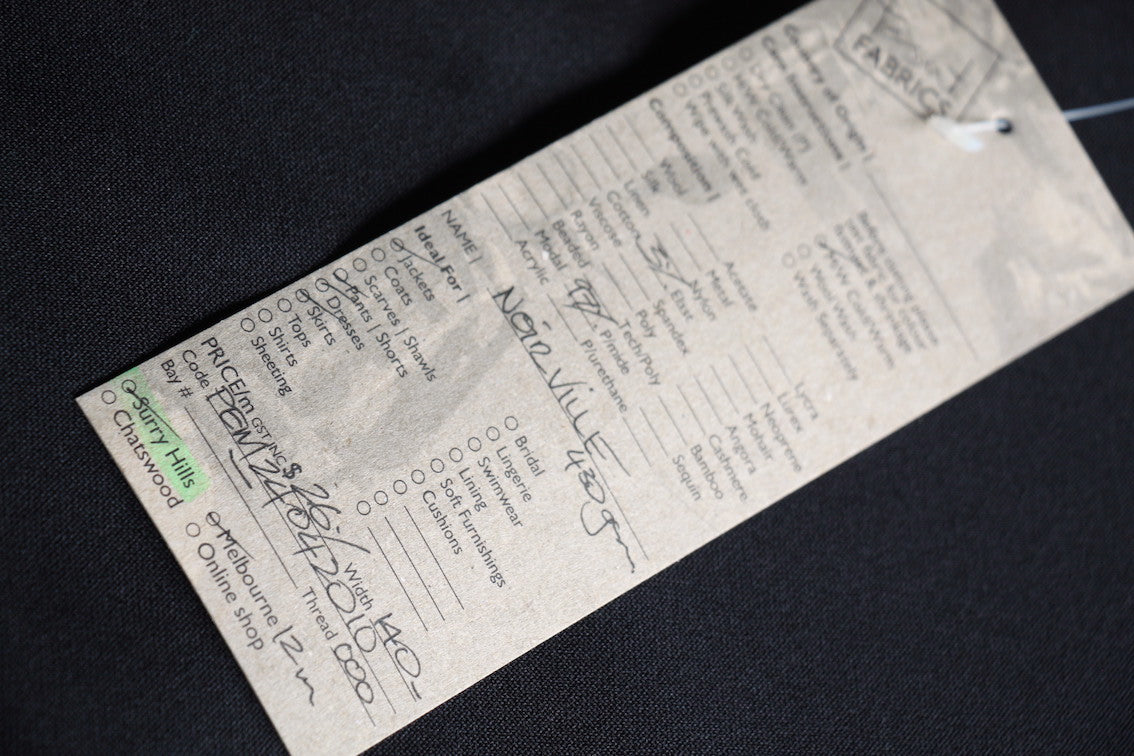 FABRICS
Country of Origin |
Care Instructions |
Before laundering please
Wool Wash
Wash Separately
Silk Wash Cold
Wipe with wet cloth
Composition |
Wool
Silk
Linen
Cotton
Viscose
Rayon
Beaded
Modal
Acrylic
Acetate
Metal
Nylon
3% Elast
Spandex
Poly
Tech/Poly
97% P/mide
P/urethane
Lycra
Lurex
Neoprene
Mohair
Angora
Cashmere
Bamboo
Sequin
NAME | NOIR VILLE
430gm
Ideal For |
Jackets
Coats
Scarves | Shawls
Pants | Shorts
Dresses
Skirts
Tops
Shirts
Sheeting
Bridal
Lingerie
Swimwear
Lining
Soft Furnishings
Cushions
PRICE/m GST INC $ 26.-/ Width 140-
Code DGM242042010 Thread 000
Bay #
Surry Hills
Chatswood
Melbourne 12m
Online shop